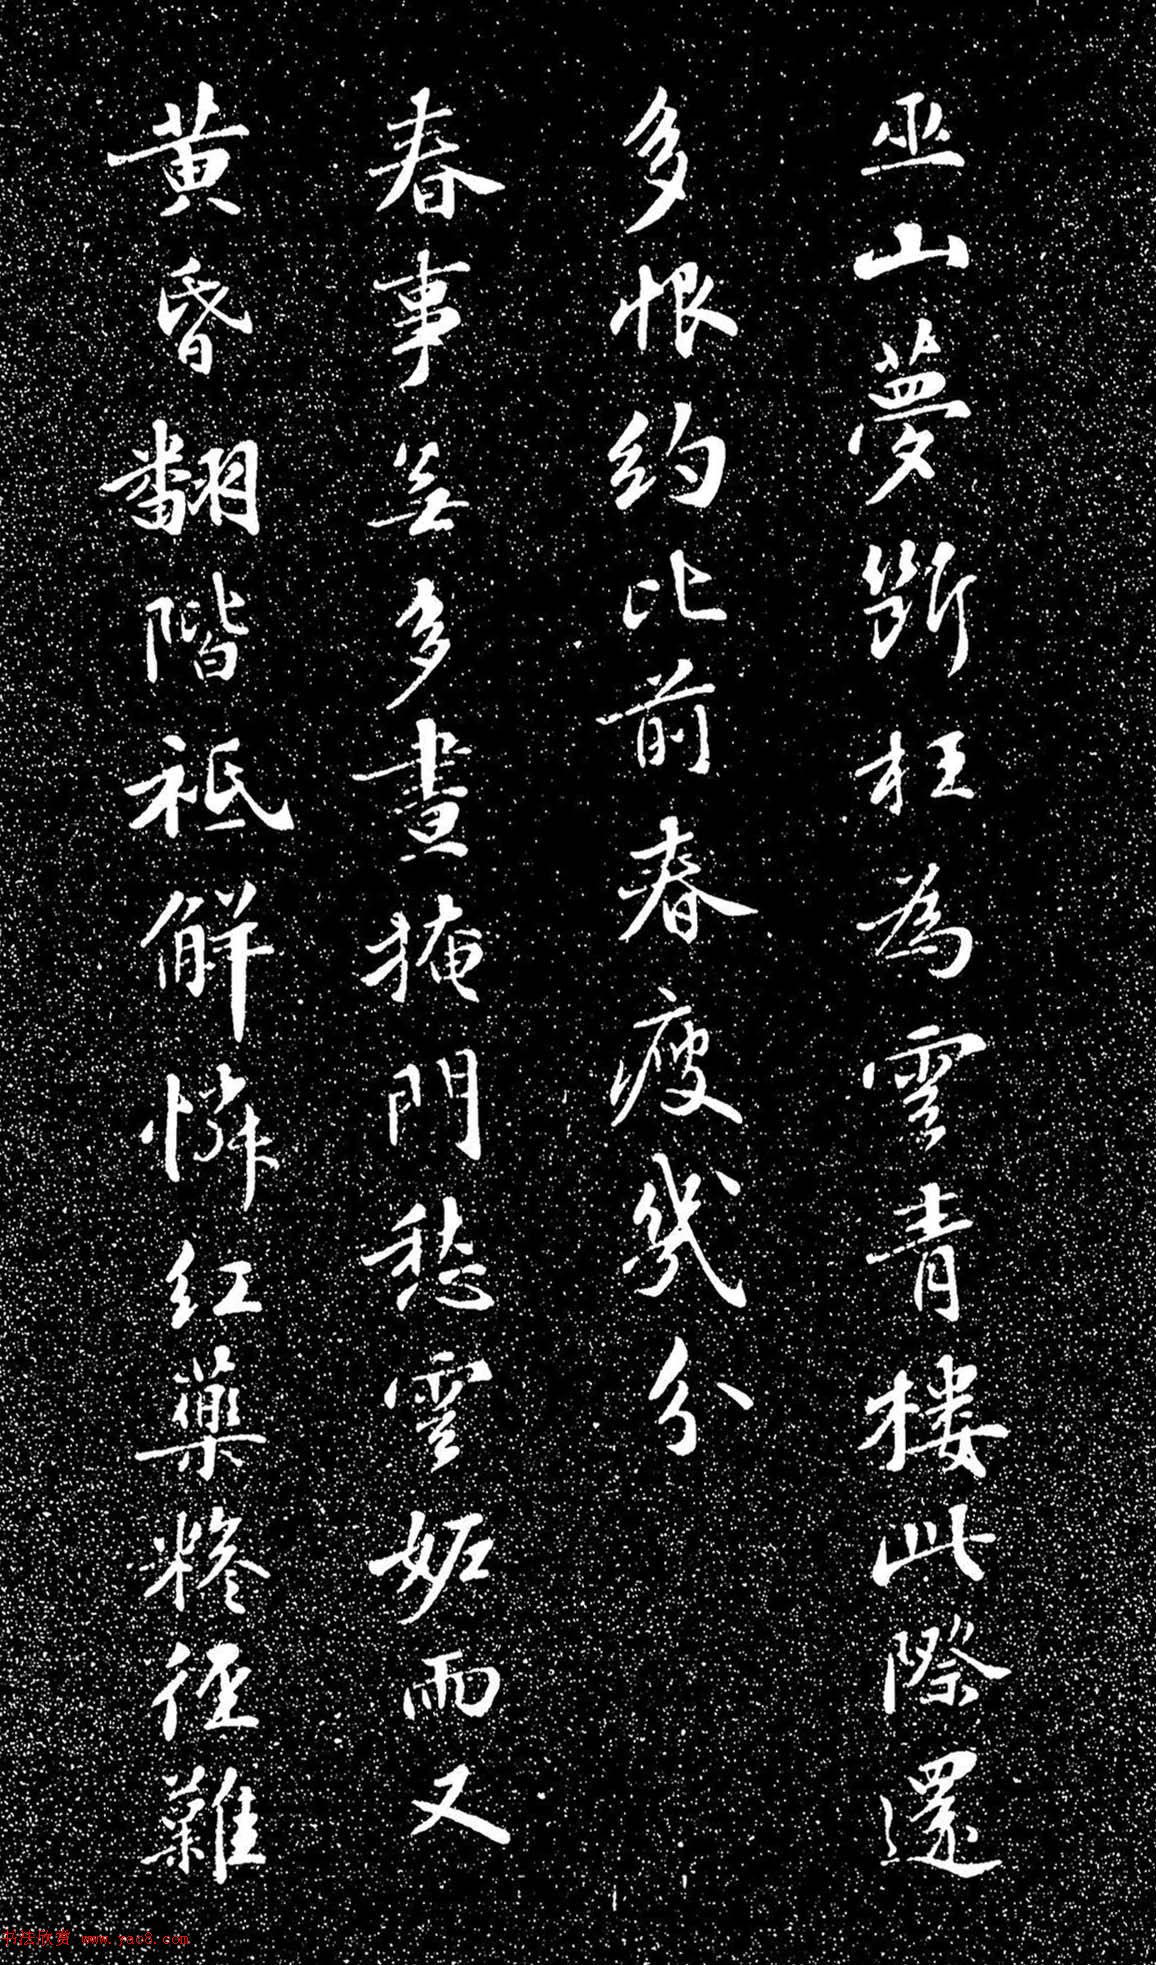 巫山夢斷枉為雲青樓此際還
多恨約比前春瘦幾分
春事無多晝掩門愁雲妬雨又
黃昏翻階祗解憐紅藥糝徑難
书法欣赏 www.yac8.com